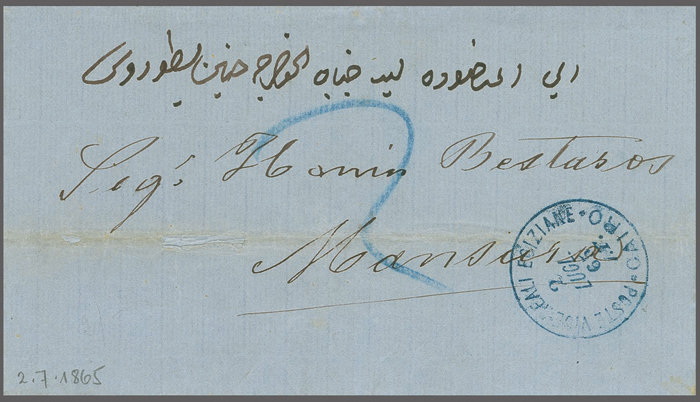 الي المنصوره ليد جناب الخواجه حنين بسطوروس
Sigr. Hanin Bestaros
2
Mansura
POSTE VICE-REALI EGIZIANE • CAIRO •
2 LUGL 65
2.7.1865